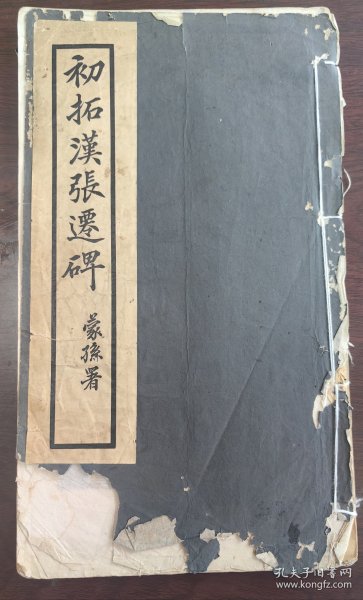 初拓漢張遷碑
蒙孫署
孔夫子旧书网
www.kongfz.com